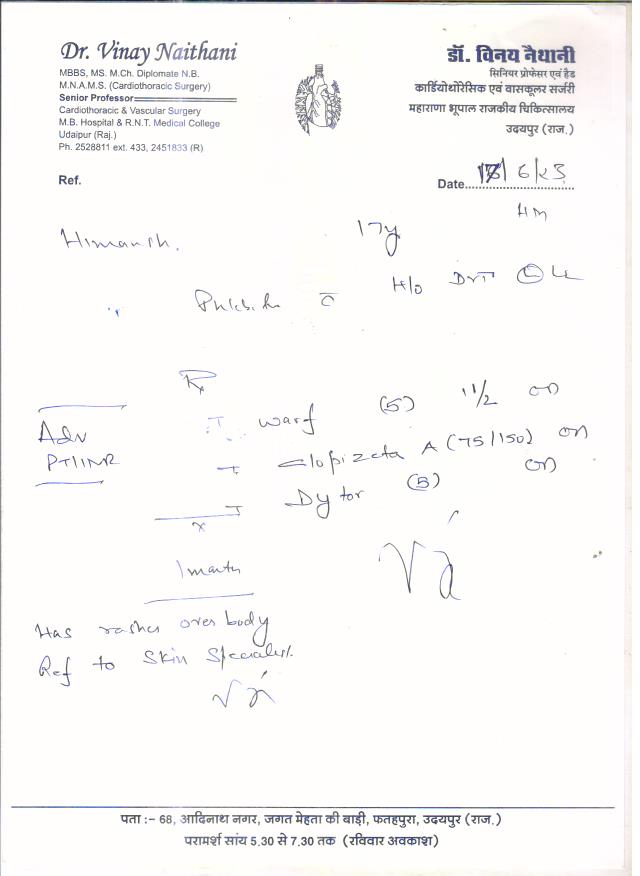 Dr. Vinay Naithani
MBBS, MS. M.Ch. Diplomate N.B.
M.N.A.M.S. (Cardiothoracic Surgery)
Senior Professor
Cardiothoracic & Vascular Surgery
M.B. Hospital & R.N.T. Medical College
Udaipur (Raj.)
Ph. 2528811 ext. 433, 2451833 (R)
डॉ. विनय नैथानी
सिनियर प्रोफेसर एवं हैड
कार्डियोथोरेसिक एवं वासकूलर सर्जरी
महाराणा भूपाल राजकीय चिकित्सालय
उदयपुर (राज.)
Ref.
Date 6/23
HM
Himansh. 17y
H/o DVT
Rx
Adv
PT/INR
T warf (5) 1 1/2 OD
T Clopizeta A (75/150) OD
T Dytor (5) OD
x
1 month
Has rashes over body
Ref to Skin Specialist.
पता :- 68, आदिनाथ नगर, जगत मेहता की बाड़ी, फतहपुरा, उदयपुर (राज.)
परामर्श सांय 5.30 से 7.30 तक (रविवार अवकाश)